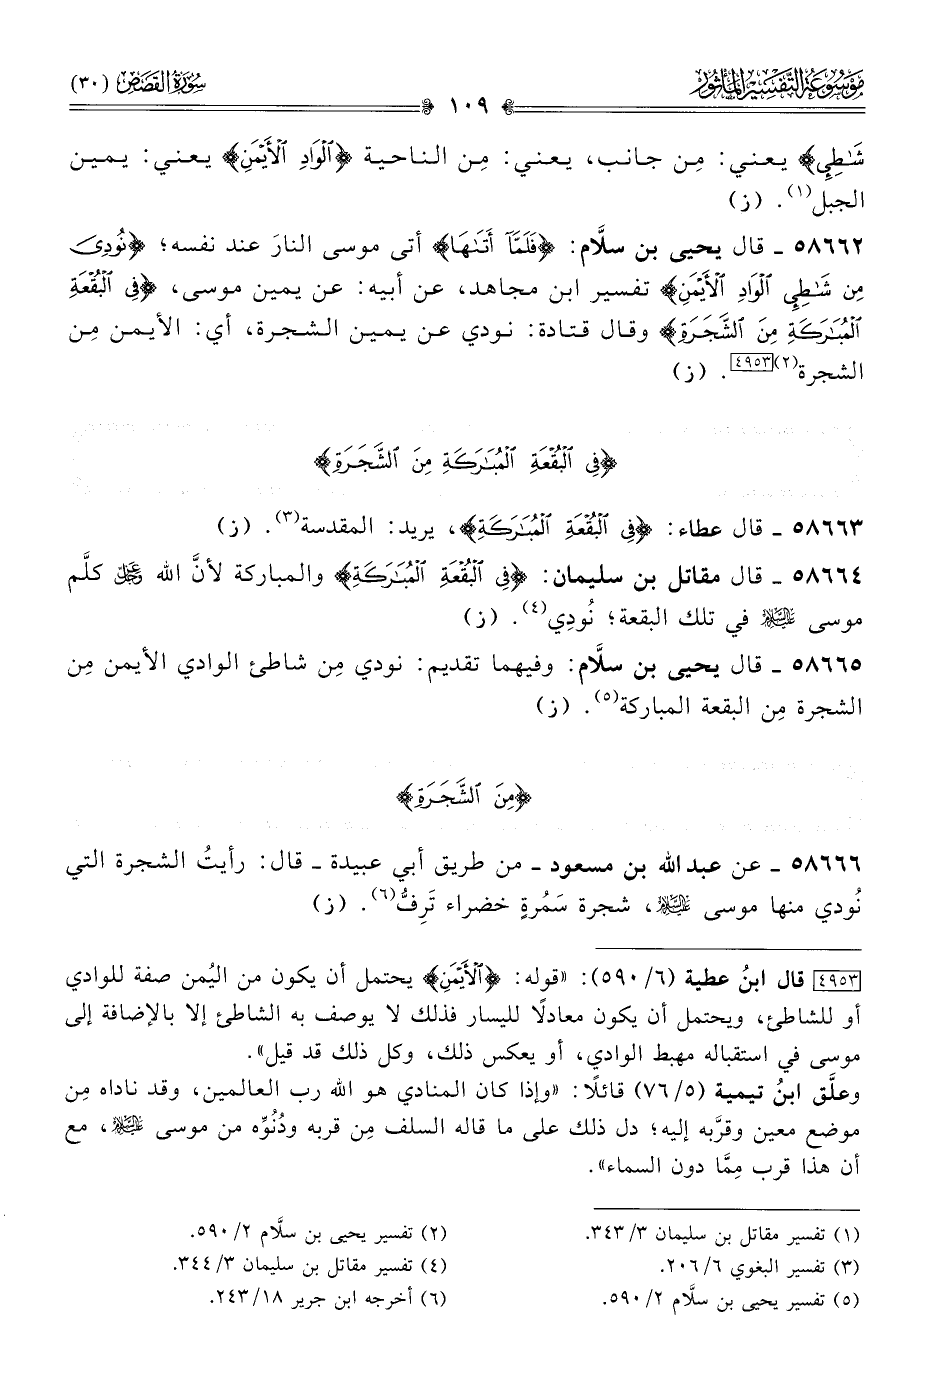 موسوعة التفسير المأثور
سورة القصص (٣٠)
١٠٩
شَٰطِيِٕ﴾ يعني: مِن جانب، يعني: مِن الناحية ﴿ٱلْوَادِ ٱلْأَيْمَنِ﴾ يعني: يمين
الجبل(١). (ز)
٥٨٦٦٢ ـ قال يحيى بن سلَّام: ﴿فَلَمَّآ أَتَىٰهَا﴾ أتى موسى النارَ عند نفسه؛ ﴿نُودِىَ
مِن شَٰطِيِٕ ٱلْوَادِ ٱلْأَيْمَنِ﴾ تفسير ابن مجاهد، عن أبيه: عن يمين موسى، ﴿فِى ٱلْبُقْعَةِ
ٱلْمُبَٰرَكَةِ مِنَ ٱلشَّجَرَةِ﴾ وقال قتادة: نودي عن يمين الشجرة، أي: الأيمن مِن
الشجرة(٢)[٤٩٥٣]. (ز)
﴿فِى ٱلْبُقْعَةِ ٱلْمُبَٰرَكَةِ مِنَ ٱلشَّجَرَةِ﴾
٥٨٦٦٣ ـ قال عطاء: ﴿فِى ٱلْبُقْعَةِ ٱلْمُبَٰرَكَةِ﴾، يريد: المقدسة(٣). (ز)
٥٨٦٦٤ ـ قال مقاتل بن سليمان: ﴿فِى ٱلْبُقْعَةِ ٱلْمُبَٰرَكَةِ﴾ والمباركة لأنَّ الله ﷿ كلَّم
موسى ﵇ في تلك البقعة؛ نُودِي(٤). (ز)
٥٨٦٦٥ ـ قال يحيى بن سلَّام: وفيهما تقديم: نودي مِن شاطئ الوادي الأيمن مِن
الشجرة مِن البقعة المباركة(٥). (ز)
﴿مِنَ ٱلشَّجَرَةِ﴾
٥٨٦٦٦ ـ عن عبد الله بن مسعود ـ من طريق أبي عبيدة ـ قال: رأيتُ الشجرة التي
نُودي منها موسى ﵇، شجرة سَمُرةٍ خضراء تَرِفُّ(٦). (ز)
[٤٩٥٣] قال ابنُ عطية (٦/ ٥٩٠): «قوله: ﴿ٱلْأَيْمَنِ﴾ يحتمل أن يكون من اليُمن صفة للوادي
أو للشاطئ، ويحتمل أن يكون معادلًا لليسار فذلك لا يوصف به الشاطئ إلا بالإضافة إلى
موسى في استقباله مهبط الوادي، أو يعكس ذلك، وكل ذلك قد قيل».
وعلَّق ابنُ تيمية (٥/ ٧٦) قائلًا: «وإذا كان المنادي هو الله رب العالمين، وقد ناداه مِن
موضع معين وقرَّبه إليه؛ دل ذلك على ما قاله السلف مِن قربه ودُنُوِّه من موسى ﵇، مع
أن هذا قرب مِمَّا دون السماء».
(١) تفسير مقاتل بن سليمان ٣/ ٣٤٣.
(٢) تفسير يحيى بن سلَّام ٢/ ٥٩٠.
(٣) تفسير البغوي ٦/ ٢٠٦.
(٤) تفسير مقاتل بن سليمان ٣/ ٣٤٤.
(٥) تفسير يحيى بن سلَّام ٢/ ٥٩٠.
(٦) أخرجه ابن جرير ١٨/ ٢٤٣.